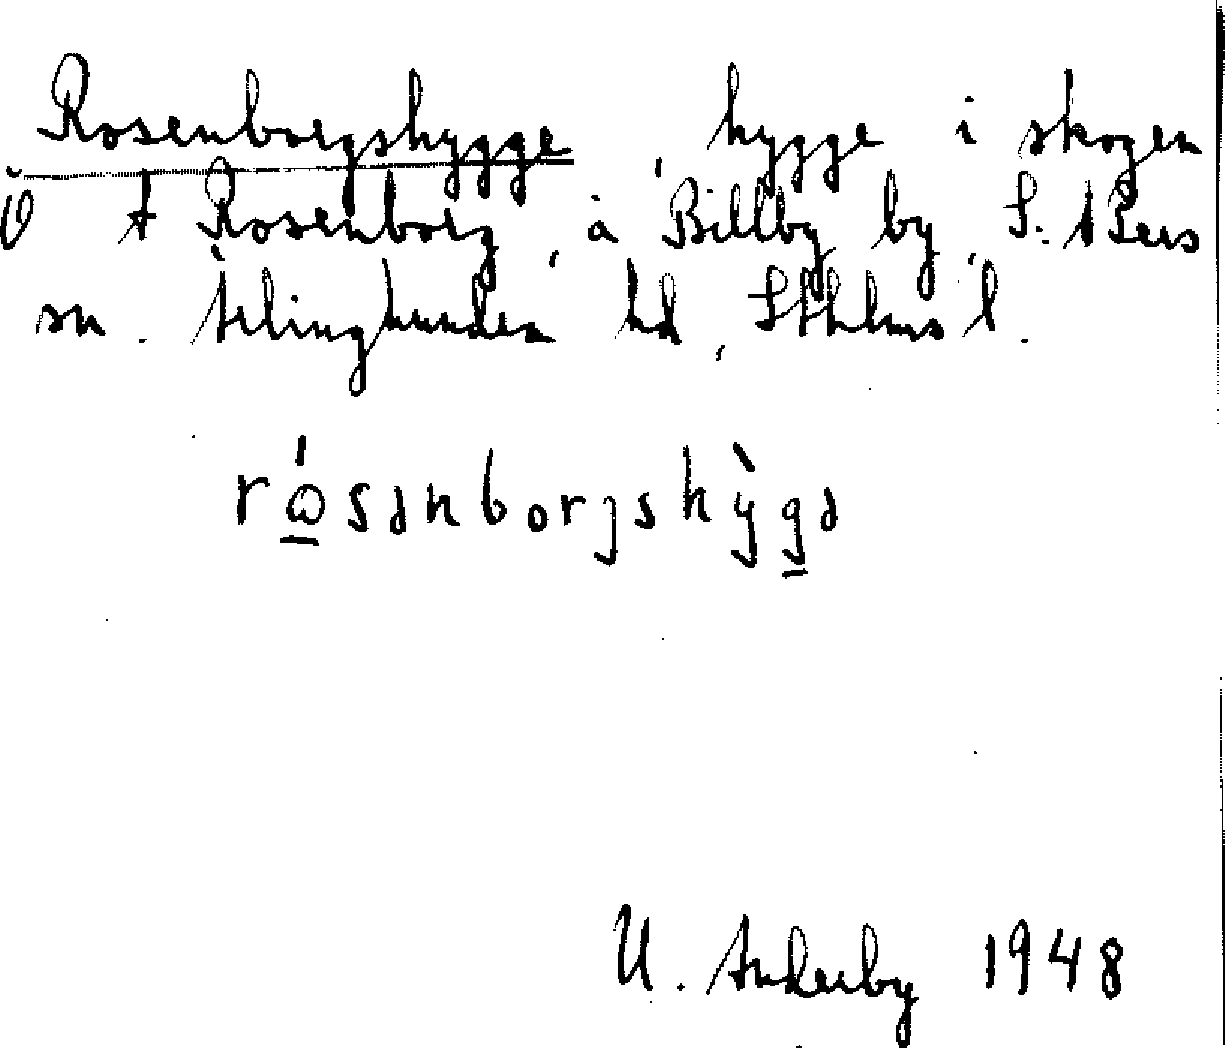 Rosenborgshygge, hygge i skogen
Ö † Rosenborg, å Billby by, S:t Pers
sn. Ärlinghundra hd, Sthlms l.
rósənborjshỳgə
U. Ankerby 1948